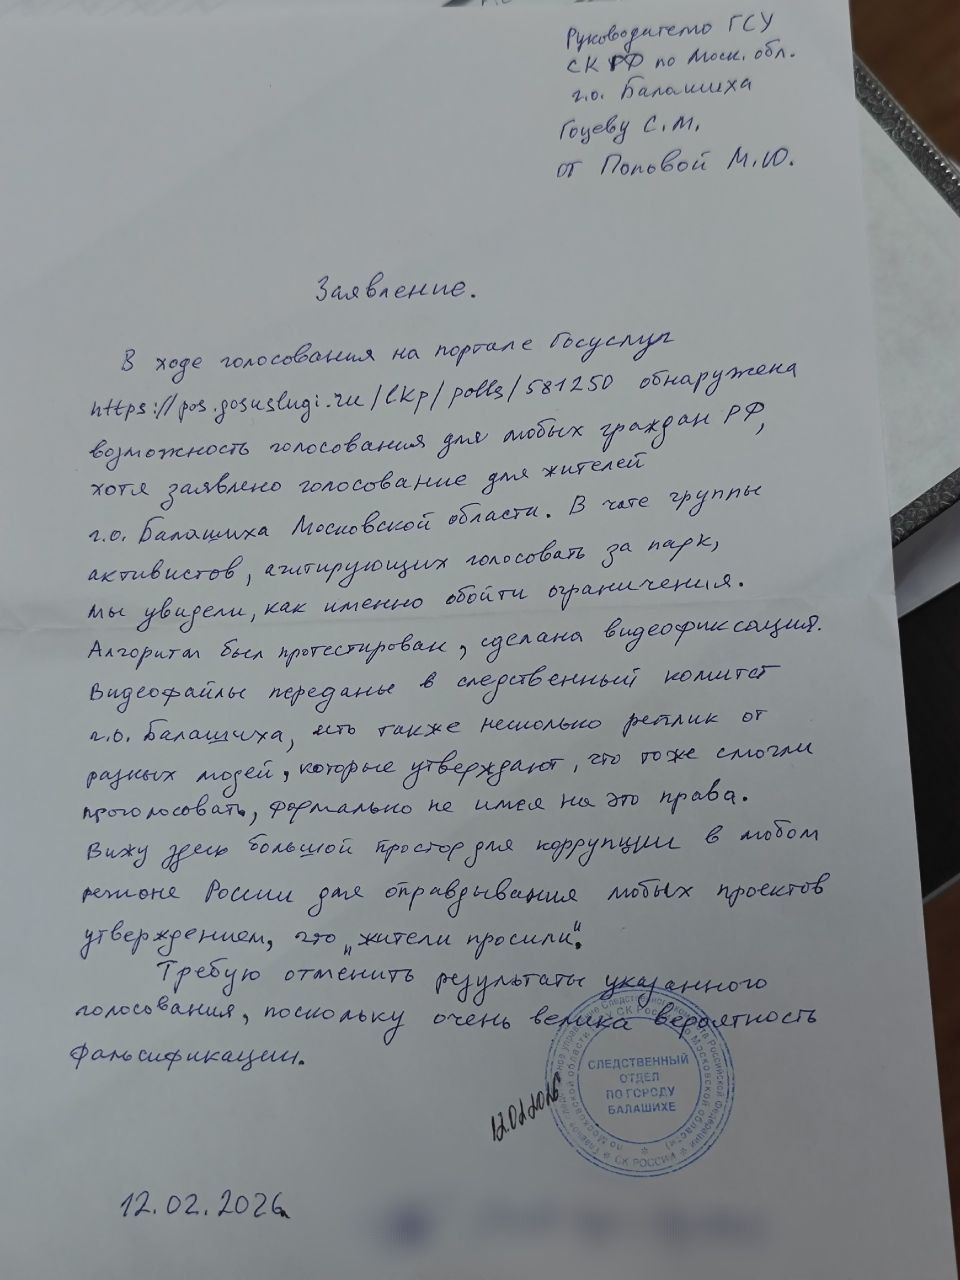 Руководителю ГСУ
СК РФ по Моск. обл.
г.о. Балашиха
Гоцеву С.М.
от Поповой М.Ю.
Заявление.
В ходе голосования на портале Госуслуг
https://pos.gosuslugi.ru/lkp/polls/581250 обнаружена
возможность голосования для любых граждан РФ,
хотя заявлено голосование для жителей
г.о. Балашиха Московской области. В чате группы
активистов, агитирующих голосовать за парк,
мы увидели, как именно обойти ограничения.
Алгоритм был протестирован, сделана видеофиксация.
Видеофайлы переданы в следственный комитет
г.о. Балашиха, есть также несколько реплик от
разных людей, которые утверждают, что тоже смогли
проголосовать, формально не имея на это права.
Вижу здесь большой простор для коррупции в любом
регионе России для оправдывания любых проектов
утверждением, что "жители просили".
Требую отменить результаты указанного
голосования, поскольку очень велика вероятность
фальсификации.
СЛЕДСТВЕННЫЙ
ОТДЕЛ
ПО ГОРОДУ
БАЛАШИХЕ
СК РОССИИ
12.02.2026
12.02.2026